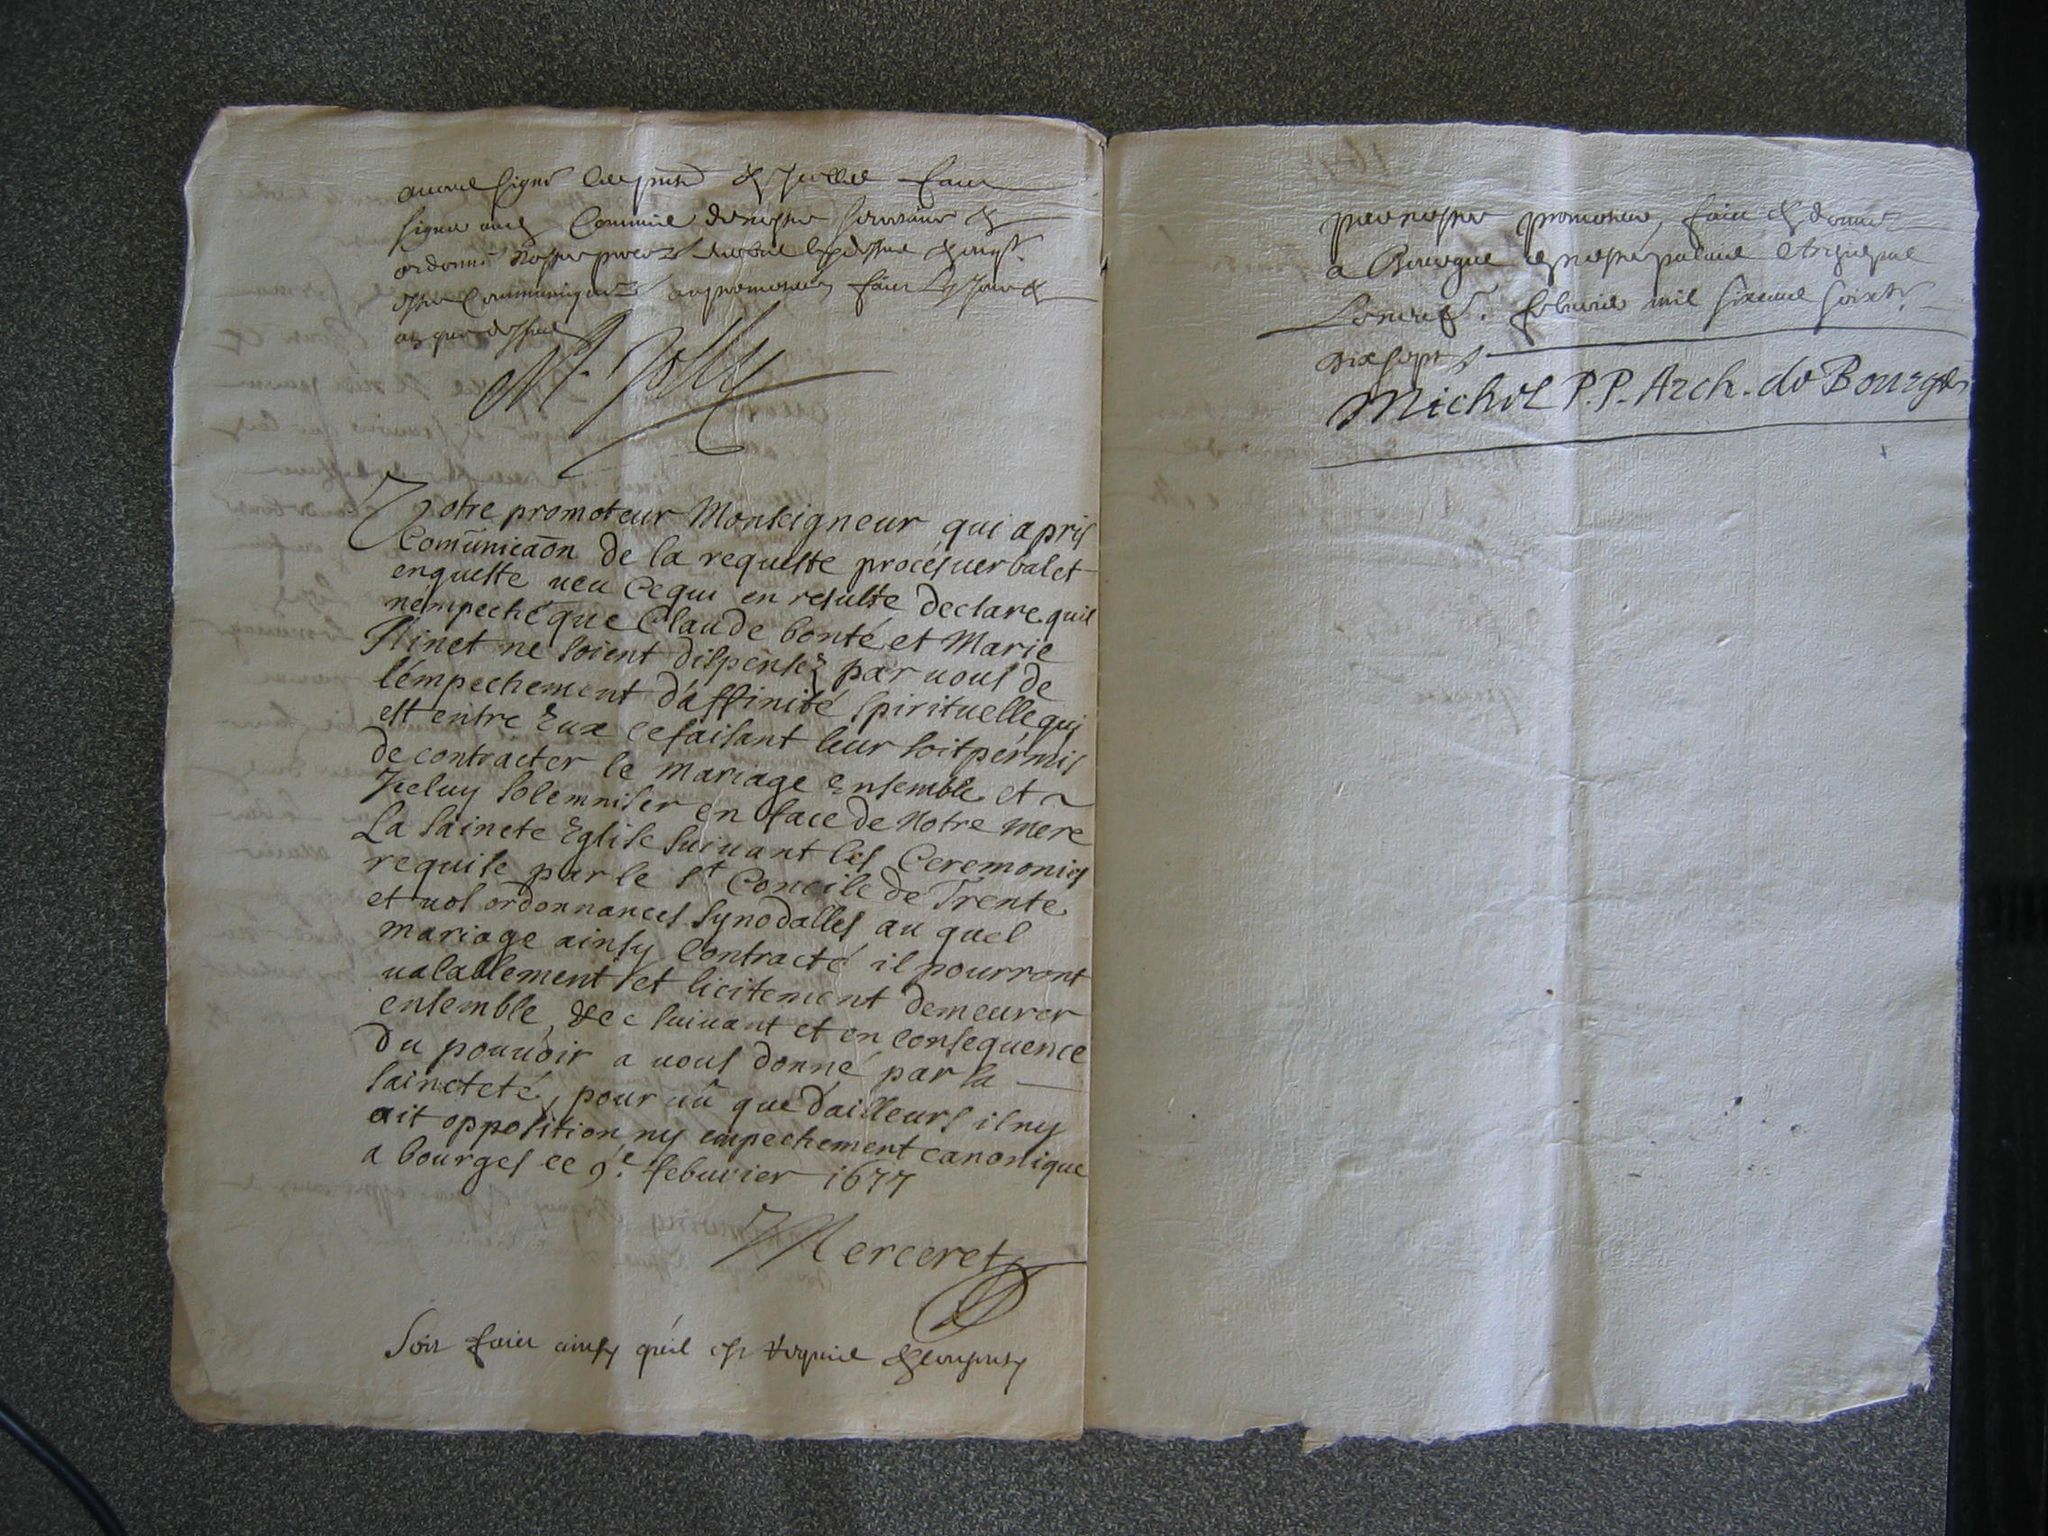 signé
signer avec Commis de nostre
ordonné
estre communiqué au promoteur fait les jour et
an que dessus
Votre promoteur Monseigneur qui a pris
Comunicaõn de la requeste procés uerbal et
enqueste ueu Ce qui en resulte declare quil
nempeche que Claude bonté et Marie
ne soient dispensez par uous de
lémpechement dáffinité spirituelle qui
est entre Eux ce faisant leur soit pérmis
de contracter le mariage Ensemble et
Iceluy solemniser en face de Notre mere
La saincte Eglise suiuant les Ceremonies
requise par le st Concile de Trente
et uos ordonnances synodalles au quel
mariage ainsy Contracté il pourront
ualablement et licitement demeurer
ensemble, &c suiuant et en consequence
Du pouuoir a uous donné par sa
saincteté, pour uû que dailleurs il ny
ait opposition ny empechement canonique
a bourges ce 9.e febuurier 1677
Merceret
Soit faict ainsy qu'il est requis
par nostre promoteur, faict et donné
a Bourges en nostre palais Archiepal
febvrier mil six cens soixte
dix sept
Michel P.P. Arch. de Bourges